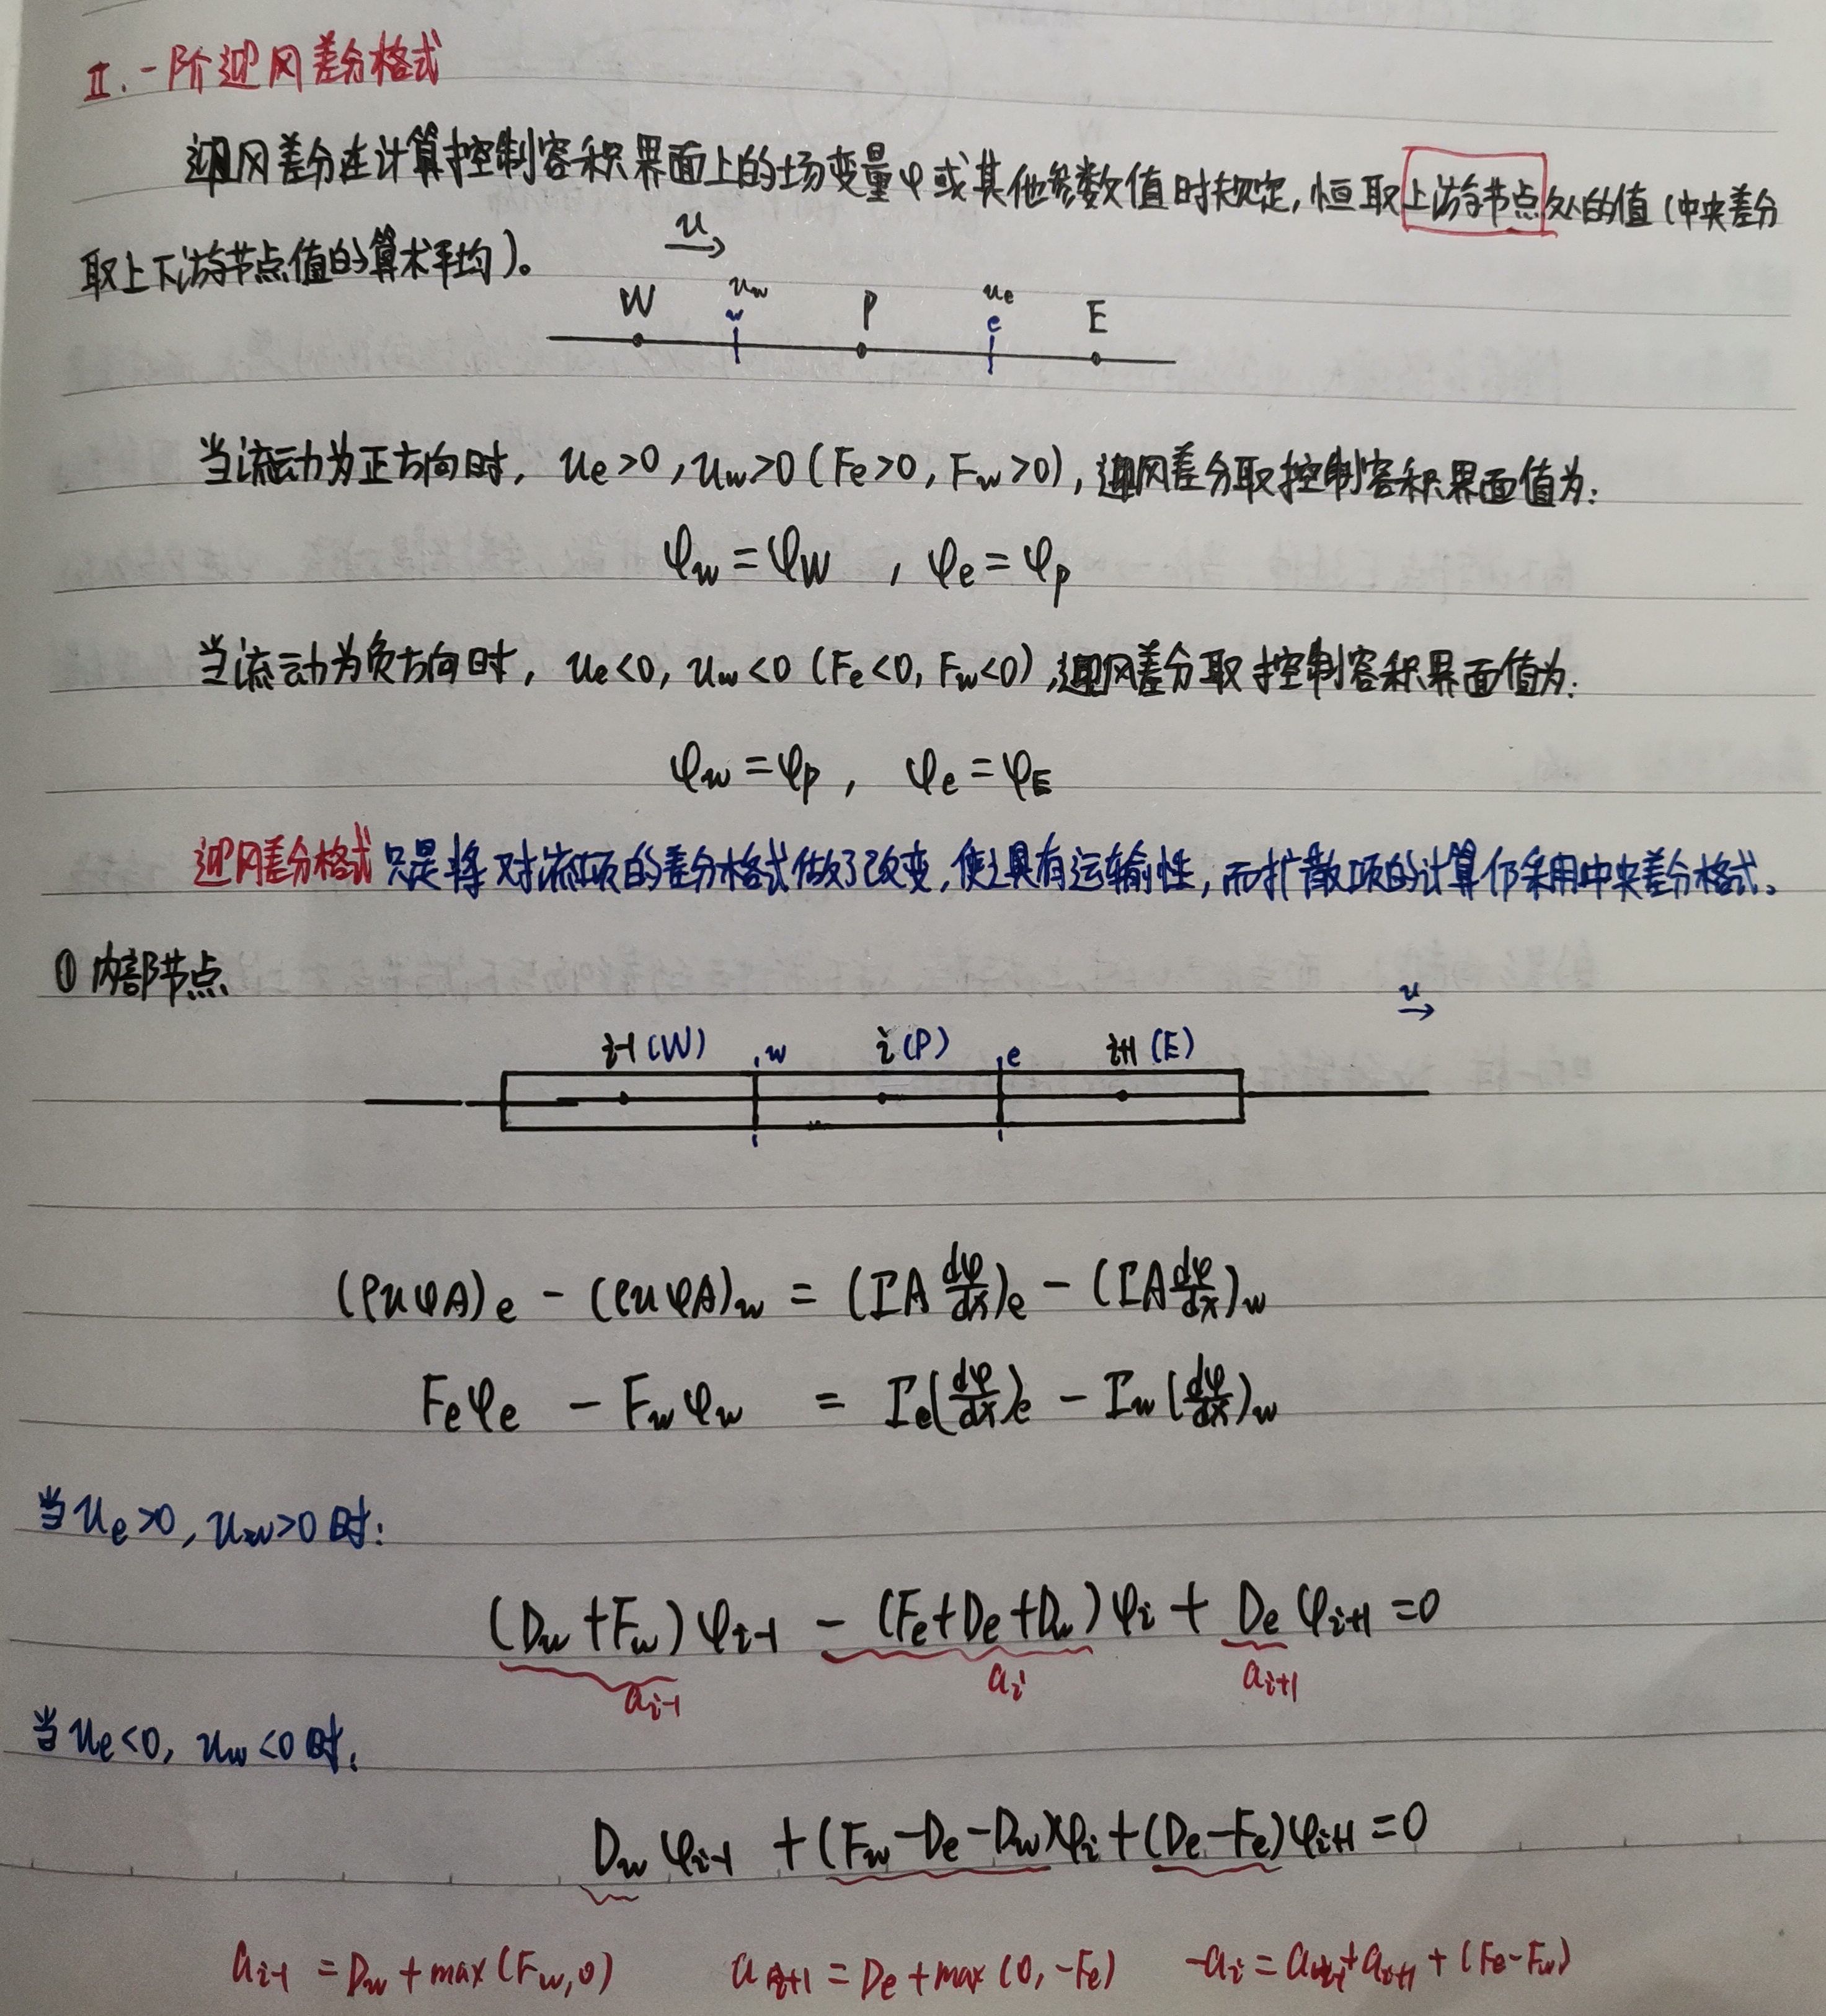 II. 一阶迎风差分格式
迎风差分在计算控制容积界面上的场变量φ或其他参数值时规定,恒取上游节点处的值(中央差分
取上下游节点值的算术平均)。
u
W u_w w P u_e e E
当流动为正方向时, u_e>0, u_w>0 (F_e>0, F_w>0), 迎风差分取控制容积界面值为:
φ_w = φ_W , φ_e = φ_P
当流动为负方向时, u_e<0, u_w<0 (F_e<0, F_w<0), 迎风差分取控制容积界面值为:
φ_w = φ_P , φ_e = φ_E
迎风差分格式只是将对流项的差分格式做了改变,使之具有运输性,而扩散项的计算仍采用中央差分格式。
① 内部节点
u
i-1 (W) w i (P) e i+1 (E)
(ρuφA)_e - (ρuφA)_w = (ΓA dφ/dx)_e - (ΓA dφ/dx)_w
F_eφ_e - F_wφ_w = Γ_e(dφ/dx)_e - Γ_w(dφ/dx)_w
当u_e>0, u_w>0时:
(D_w+F_w)φ_{i-1} - (F_e+D_e+D_w)φ_i + D_eφ_{i+1} = 0
a_{i-1} a_i a_{i+1}
当u_e<0, u_w<0时:
D_wφ_{i-1} + (F_w-D_e-D_w)φ_i + (D_e-F_e)φ_{i+1} = 0
a_{i-1} = D_w + max(F_w,0) a_{i+1} = D_e + max(0,-F_e) -a_i = a_{i-1} + a_{i+1} + (F_e-F_w)